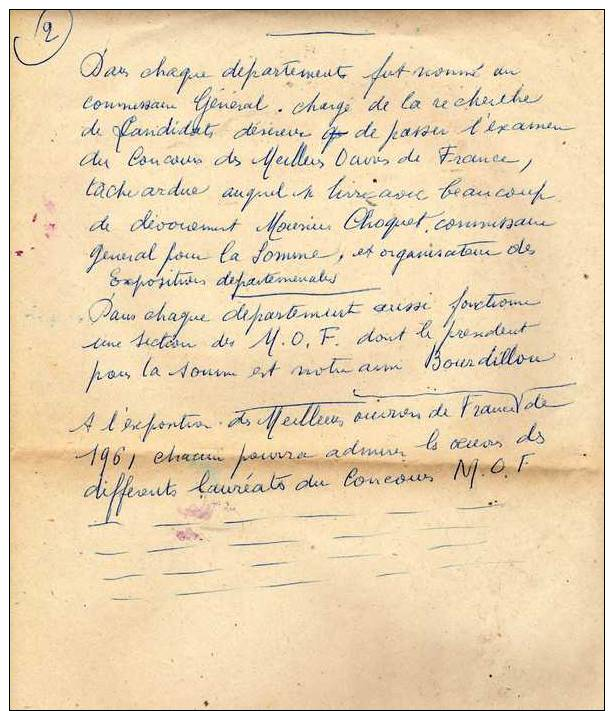 2
Dans chaque departements fut nommé un
commissaire Général. chargé de la recherche
de Candidats désireux de passer l'examen
du Concours des Meilleurs Ouvriers de France,
tache ardue auquel se livre avec beaucoup
de dévouement Monsieur Choquet. commissaire
General pour la Somme, et organisateur des
Expositions departementales
Dans chaque departement aussi fonctionne
une section des M.O.F. dont le president
pour la somme est notre ami Bourdillon
A l'exposition des Meilleurs ouvriers de France de
1961 chacun pourra admirer les oeuvres des
différents lauréats du Concours M.O.F